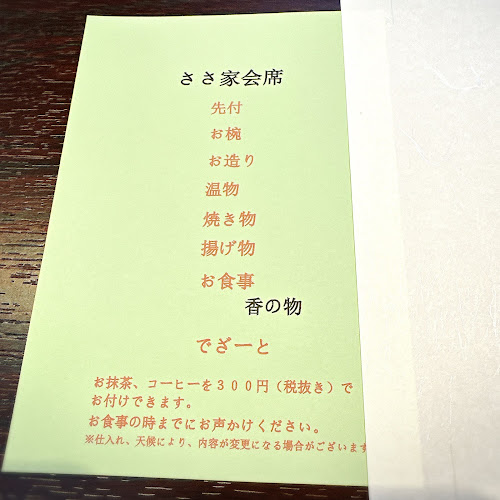 ささ家会席
先付
お椀
お造り
温物
焼き物
揚げ物
お食事
香の物
でざーと
お抹茶、コーヒーを300円（税抜き）で
お付けできます。
お食事の時までにお声かけください。
※仕入れ、天候により、内容が変更になる場合がございます